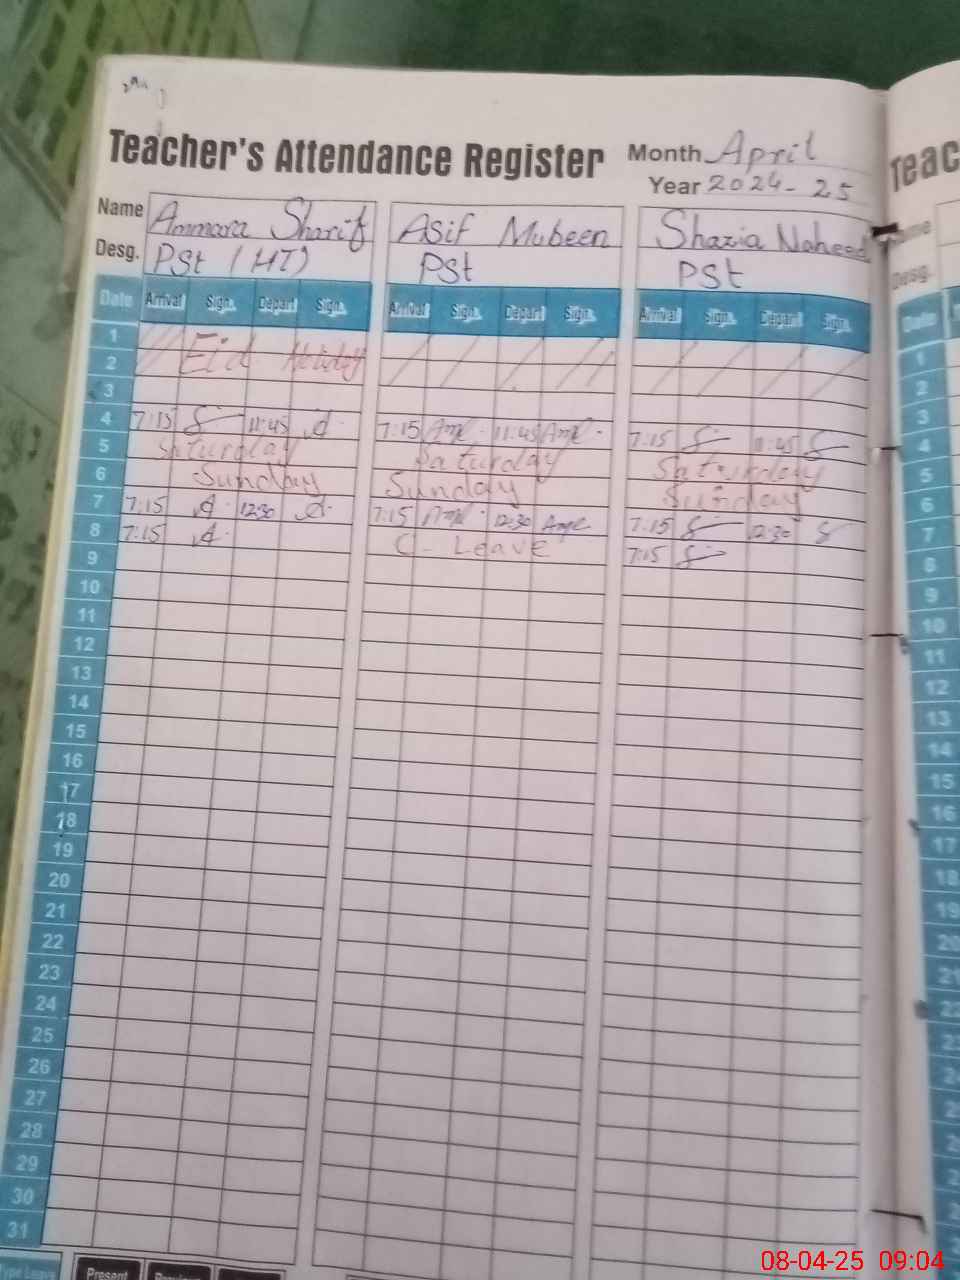 Teacher's Attendance Register Month April
Year 2024-25
Name Ammara Sharif Asif Mubeen Shazia Naheed
Desg. PSt (HT) PSt PSt
Date Arrival Sign. Depart Sign. Arrival Sign. Depart Sign. Arrival Sign. Depart Sign.
1 Eid Holiday
2
3
4 7:15 11:45 7:15 11:45 7:15 11:45
5 Saturday Saturday Saturday
6 Sunday Sunday Sunday
7 7:15 12:30 7:15 12:30 7:15 12:30
8 7:15 C-Leave 7:15
9
10
11
12
13
14
15
16
17
18
19
20
21
22
23
24
25
26
27
28
29
30
31
Type Leave Present
Teac
Desg.
Date
1
2
3
4
5
6
7
8
9
10
11
12
13
14
15
16
17
18
19
20
08-04-25 09:04